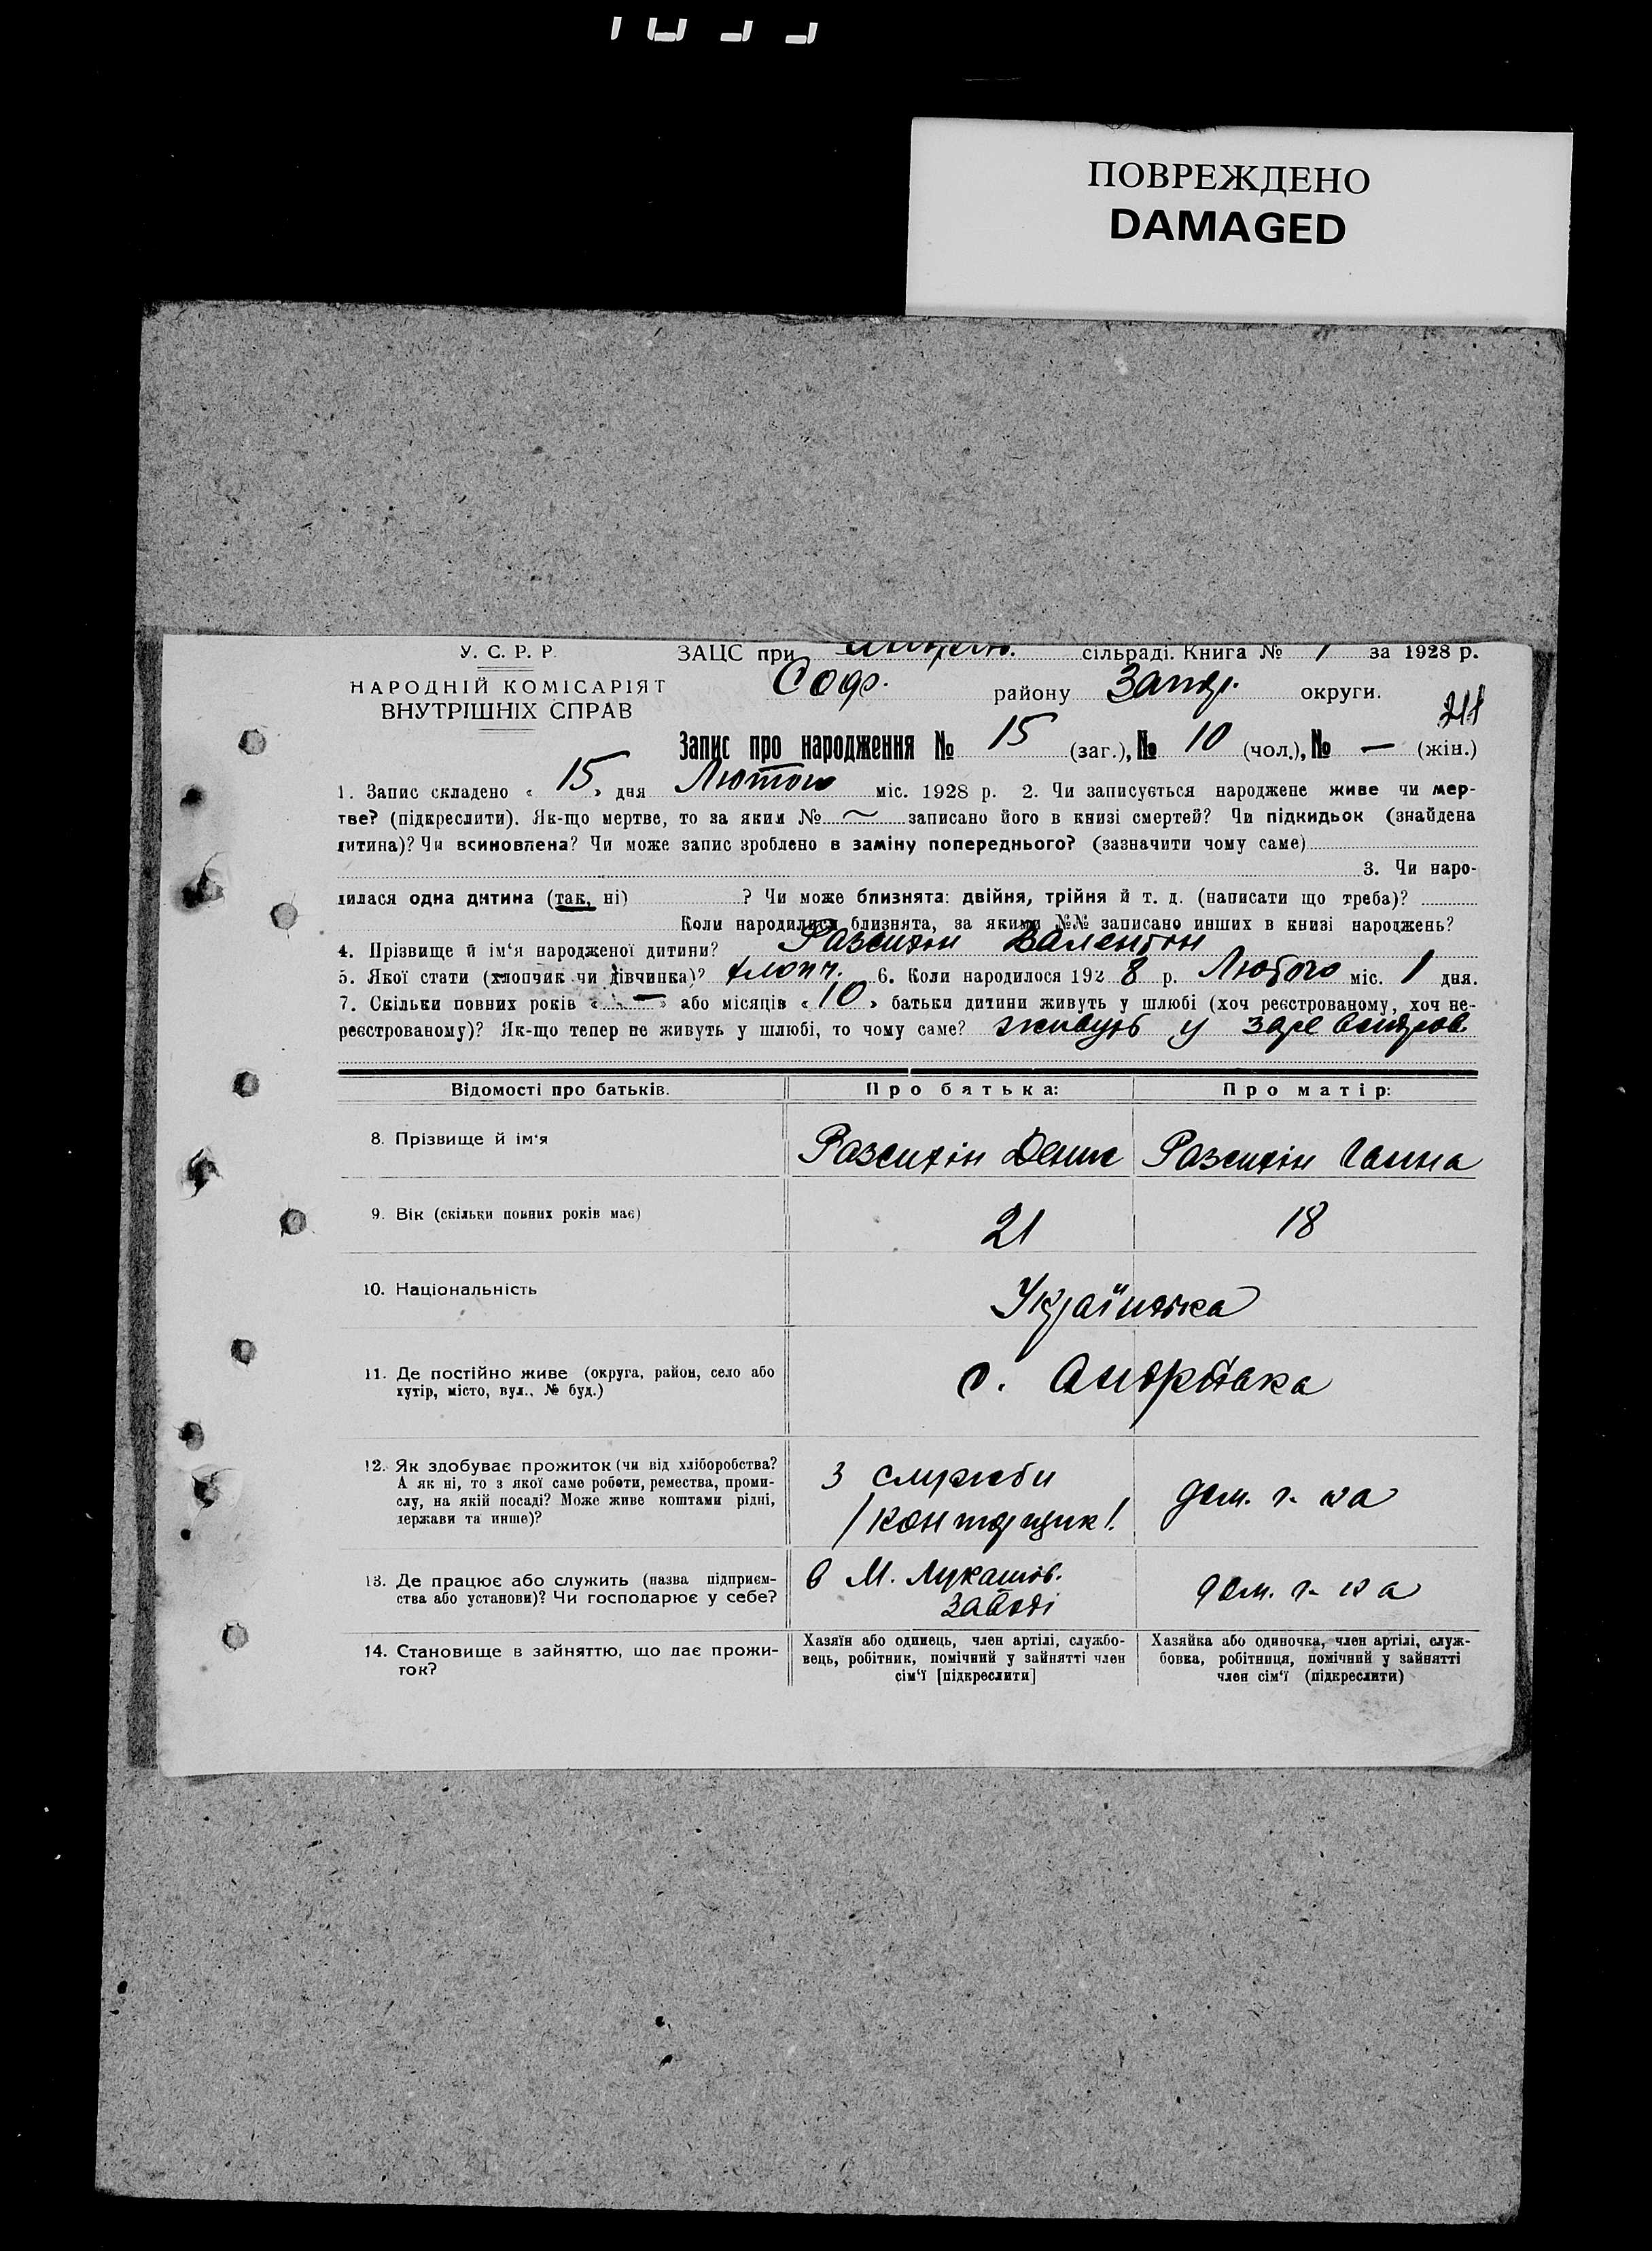 ПОВРЕЖДЕНО
DAMAGED
У. С. Р. Р.
НАРОДНІЙ КОМІСАРІЯТ
ВНУТРІШНІХ СПРАВ
ЗАЦС при сільраді. Книга № 1 за 1928 р.
Соф. району Запор. округи.
211
Запис про народження № 15 (заг.), № 10 (чол.), № — (жін.)
1. Запис складено « 15 » дня Лютого міс. 1928 р. 2. Чи записується народжене живе чи мер-
тве? (підкреслити). Як-що мертве, то за яким № ~ записано його в книзі смертей? Чи підкидьок (знайдена
дитина)? Чи всиновлена? Чи може запис зроблено в заміну попереднього? (зазначити чому саме)
3. Чи наро-
дилася одна дитина (так, ні) ? Чи може близнята: двійня, трійня й т. д. (написати що треба)?
Коли народилися близнята, за якими №№ записано инших в книзі народжень?
4. Прізвище й ім‘я народженої дитини? Разсихін Валентін
5. Якої стати (хлопчик чи дівчинка)? хлопч. 6. Коли народилося 192 8 р. Лютого міс. 1 дня.
7. Скільки повних років « — » або місяців « 10 » батьки дитини живуть у шлюбі (хоч реєстрованому, хоч не-
реєстрованому)? Як-що тепер не живуть у шлюбі, то чому саме? живуть у
Відомості про батьків. Про батька: Про матір:
8. Прізвище й ім‘я Разсихін Денис Разсихін Ганна
9. Вік (скільки повних років має) 21 18
10. Національність Українська
11. Де постійно живе (округа, район, село або
хутір, місто, вул., № буд.) с. Андріївка
12. Як здобуває прожиток (чи від хліборобства?
А як ні, то з якої саме роботи, ремества, проми-
слу, на якій посаді? Може живе коштами рідні,
держави та инше)?
З служби
/конторщик/.
дом. г-ка
13. Де працює або служить (назва підприєм-
ства або установи)? Чи господарює у себе?
в М. Лукашів.
заводі
дом. г-ка
14. Становище в зайняттю, що дає прожи-
ток?
Хазяїн або одинець, член артілі, службо-
вець, робітник, помічний у зайнятті член
сім‘ї [підкреслити]
Хазяйка або одиночка, член артілі, служ-
бовка, робітниця, помічний у зайнятті
член сім‘ї (підкреслити)